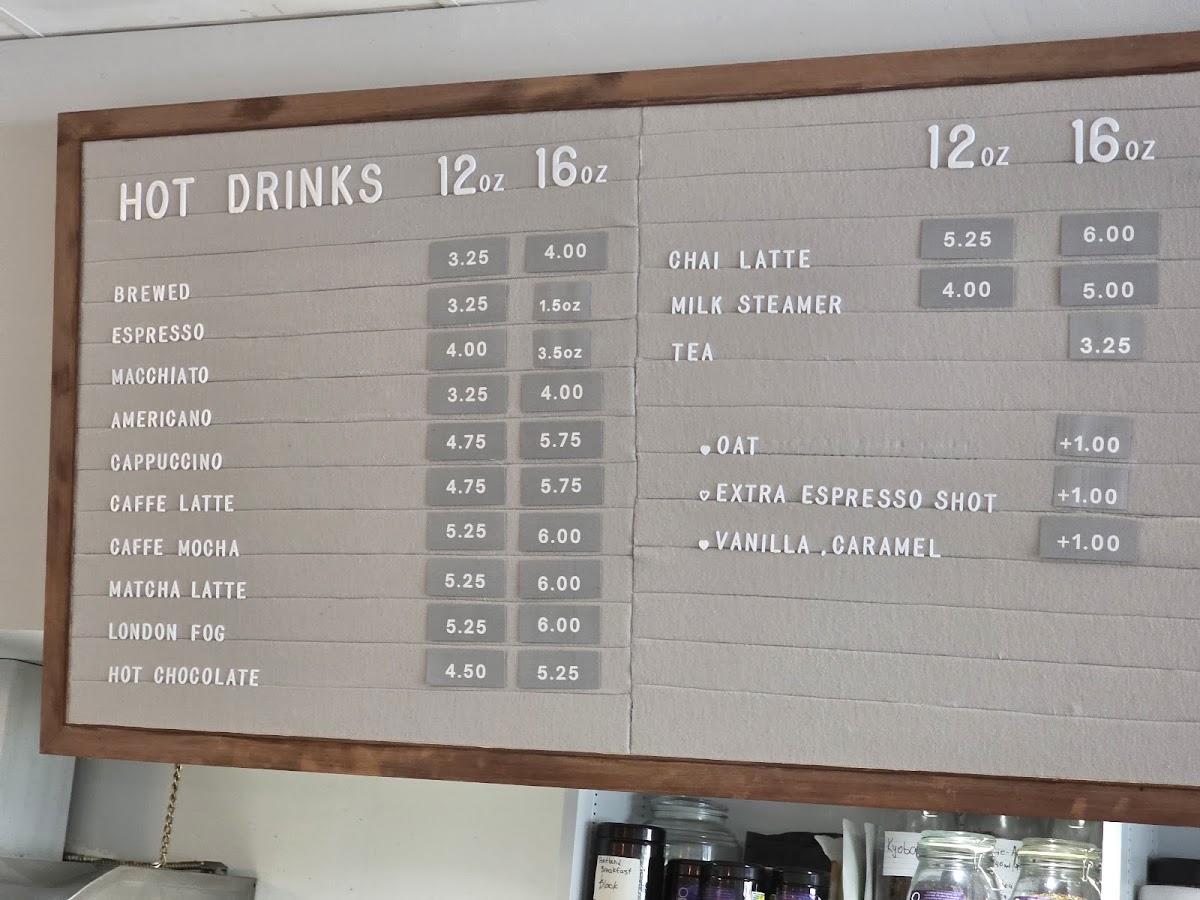 HOT DRINKS 12oz 16oz
BREWED 3.25 4.00
ESPRESSO 3.25 1.5oz
MACCHIATO 4.00 3.5oz
AMERICANO 3.25 4.00
CAPPUCCINO 4.75 5.75
CAFFE LATTE 4.75 5.75
CAFFE MOCHA 5.25 6.00
MATCHA LATTE 5.25 6.00
LONDON FOG 5.25 6.00
HOT CHOCOLATE 4.50 5.25
12oz 16oz
CHAI LATTE 5.25 6.00
MILK STEAMER 4.00 5.00
TEA 3.25
♥OAT +1.00
♥EXTRA ESPRESSO SHOT +1.00
♥VANILLA ,CARAMEL +1.00
Breakfast
Black